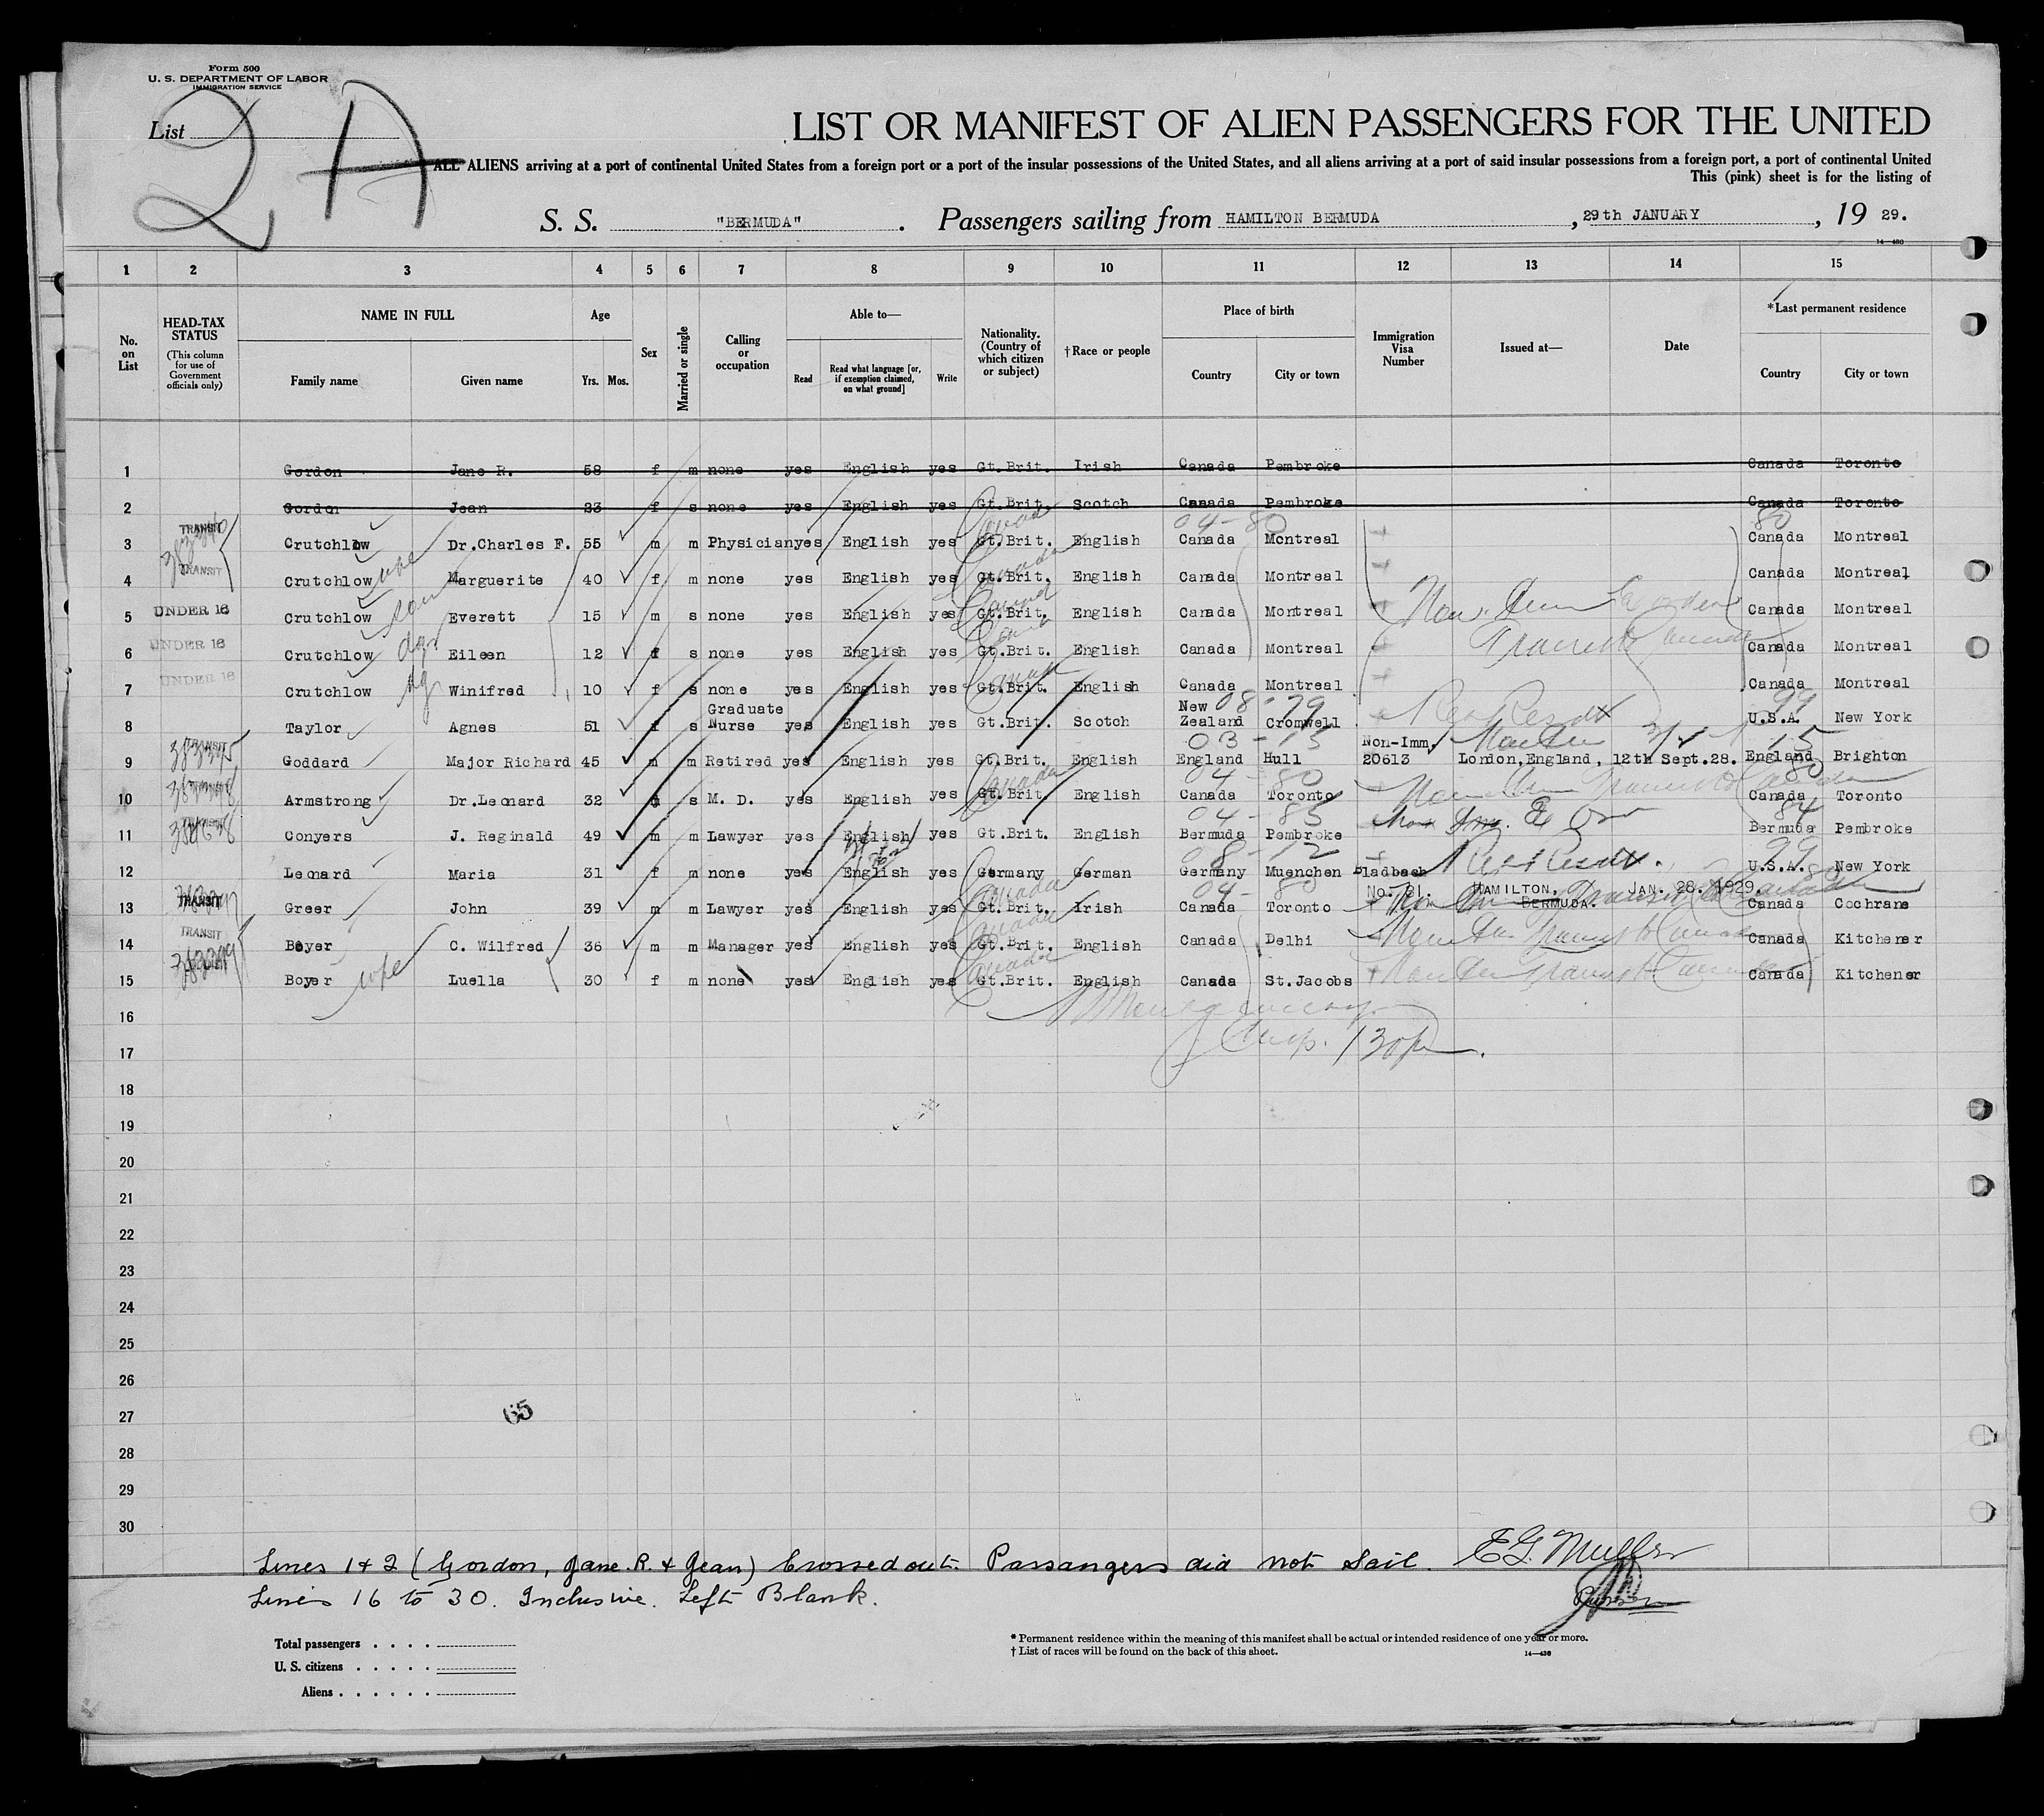 Form 500
U. S. DEPARTMENT OF LABOR
IMMIGRATION SERVICE
List
2 A
LIST OR MANIFEST OF ALIEN PASSENGERS FOR THE UNITED
ALL ALIENS arriving at a port of continental United States from a foreign port or a port of the insular possessions of the United States, and all aliens arriving at a port of said insular possessions from a foreign port, a port of continental United
This (pink) sheet is for the listing of
S. S. "BERMUDA". Passengers sailing from HAMILTON BERMUDA, 29th JANUARY, 19 29.
14-480
1 2 3 4 5 6 7 8 9 10 11 12 13 14 15
No. on List
HEAD-TAX STATUS (This column for use of Government officials only)
NAME IN FULL
Family name Given name
Age
Yrs. Mos.
Sex
Married or single
Calling or occupation
Able to—
Read Read what language [or, if exemption claimed, on what ground] Write
Nationality. (Country of which citizen or subject)
†Race or people
Place of birth
Country City or town
Immigration Visa Number
Issued at—
Date
*Last permanent residence
Country City or town
1 Gordon Jane R. 58 f m none yes English yes Gt.Brit. Irish Canada Pembroke Canada Toronto
2 Gordon Jean 23 f s none yes English yes Gt.Brit. Scotch Canada Pembroke Canada Toronto
04-80 80
3 TRANSIT Crutchlow Dr.Charles F. 55 m m Physician yes English yes Gt.Brit. Canada English Canada Montreal Canada Montreal
4 TRANSIT Crutchlow wife Marguerite 40 f m none yes English yes Gt.Brit. Canada English Canada Montreal Canada Montreal
5 UNDER 16 Crutchlow son Everett 15 m s none yes English yes Gt.Brit. Canada English Canada Montreal Canada Montreal
6 UNDER 16 Crutchlow Eileen 12 f s none yes English yes Gt.Brit. Canada English Canada Montreal Canada Montreal
7 UNDER 16 Crutchlow Winifred 10 f s none yes English yes Gt.Brit. Canada English Canada Montreal Canada Montreal
08-79 99
8 Taylor Agnes 51 f s Graduate Nurse yes English yes Gt.Brit. Scotch New Zealand Cromwell U.S.A. New York
03-15 15
9 TRANSIT Goddard Major Richard 45 m m Retired yes English yes Gt.Brit. English England Hull Non-Imm. 20613 London,England, 12th Sept.28. England Brighton
04-80 80
10 Armstrong Dr.Leonard 32 s M. D. yes English yes Gt.Brit. Canada English Canada Toronto Canada Toronto
04-85 84
11 Conyers J. Reginald 49 m m Lawyer yes English yes Gt.Brit. English Bermuda Pembroke Bermuda Pembroke
8-12 99
12 Leonard Maria 31 f m none yes English yes Germany German Germany Muenchen Gladbach U.S.A. New York
No. 31. HAMILTON, BERMUDA. JAN. 28. 1929.
04-80 80
13 TRANSIT Greer John 39 m m Lawyer yes English yes Gt.Brit. Canada Irish Canada Toronto Canada Cochrane
14 TRANSIT Boyer C. Wilfred 36 m m Manager yes English yes Gt.Brit. Canada English Canada Delhi Canada Kitchener
15 Boyer wife Luella 30 f m none yes English yes Gt.Brit. Canada English Canada St.Jacobs Canada Kitchener
16
17
18
19
20
21
22
23
24
25
26
27
65
28
29
30
Lines 1 & 2 (Gordon, Jane. R. & Jean) Crossed out. Passangers did not sail. E G. Muller
Lines 16 to 30. Inclusive. Left Blank. Purser
Total passengers
U. S. citizens
Aliens
* Permanent residence within the meaning of this manifest shall be actual or intended residence of one year or more.
† List of races will be found on the back of this sheet.
14-430